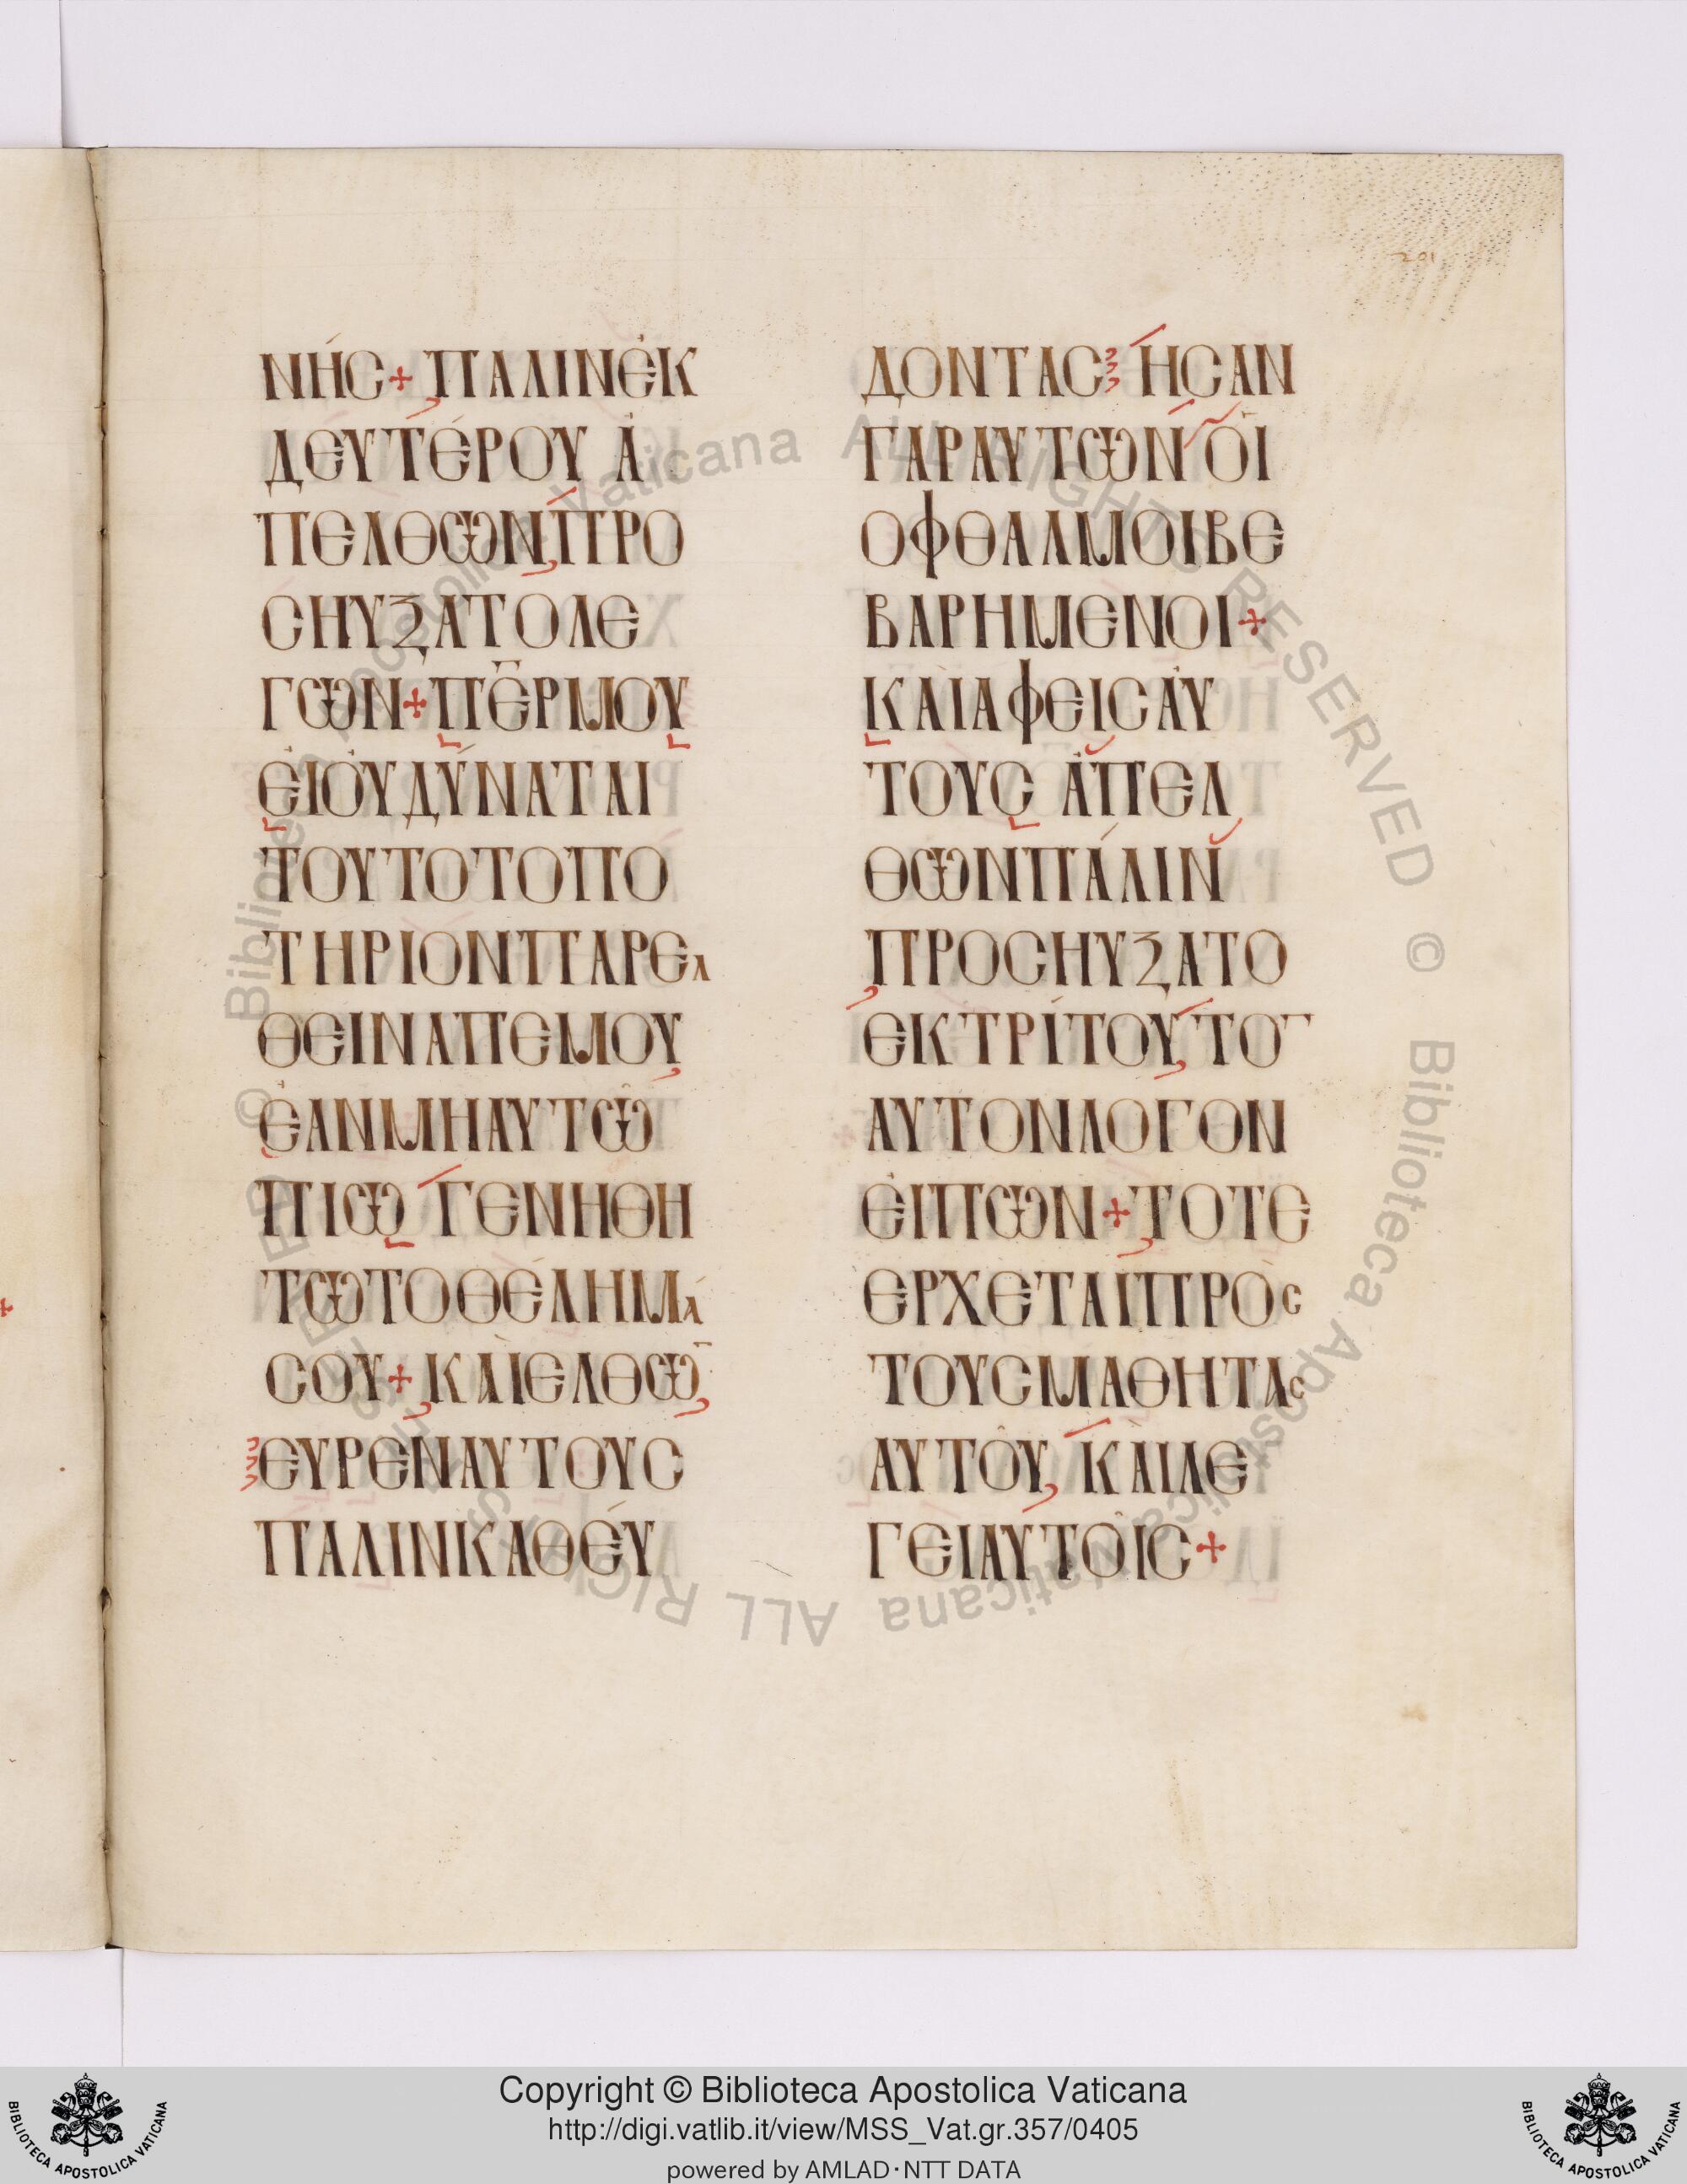 201
ΝΉϹ + ΠΑΛΙΝἘΚ
ΔΕΥΤΈΡΟΥ Ἀ
ΠΕΛΘΩΝΠΡΟ
ϹΗΥΞΑΤΟΛΕ
ΓΩΝ + ΠΕ̈ΡΜΟΥ
ἘΙΟὐΔΎΝΑΤΑΙ
ΤΟΥΤΟΤΟΠΟ
ΤΗΡΙΟΝΠΑΡΕΛ
ΘΕΙΝΑΠΕΜΟΥ
ἘΑΝΜΗΑΥΤΩ͂
ΠΙΩ ΓΕΝΗΘΗ
ΤΩΤΟΘΈΛΗΜΆ
ϹΟΥ + ΚΑῚΕΛΘΩ̄
ΕΥΡΕΝΑΥΤΟΥϹ
ΠΑΛΙΝΚΑΘΈΥ
ΔΟΝΤΑϹ ἩϹΑΝ
ΓΑΡΑΥΤΩΝ ὉΙ
ΟΦΘΑΛΜΟΙΒΕ
ΒΑΡΗΜΕΝΟΙ +
ΚΑῚΑΦΕῚϹΑΥ̓
ΤΟΥϹ ἈΠΕΛ
ΘΩΝΠΆΛΙΝ
ΠΡΟϹΗΥΞΑΤΟ
ΕΚΤΡΊΤΟΥ ΤΟ̄
ΑΥΤΟΝΛΟΓΟΝ
ἘΙΠΩΝ + ΤΟΤΕ
ΕΡΧΕΤΑΙΠΡῸϹ
ΤΟΥϹΜΑΘΗΤΑϹ
ΑΥΤΟΥ͂ ΚΑῚΛΕ
ΓΕΙΑΥΤΟΙ͂Ϲ +
© Biblioteca Apostolica Vaticana ALL RIGHTS RESERVED © Biblioteca Apostolica Vaticana ALL RIGHTS RESERVED
Copyright © Biblioteca Apostolica Vaticana
http://digi.vatlib.it/view/MSS_Vat.gr.357/0405
powered by AMLAD·NTT DATA
BIBLIOTECA APOSTOLICA VATICANA
BIBLIOTECA APOSTOLICA VATICANA